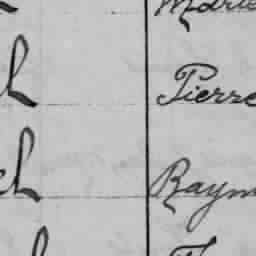 Marie
h Pierre
ch Raym